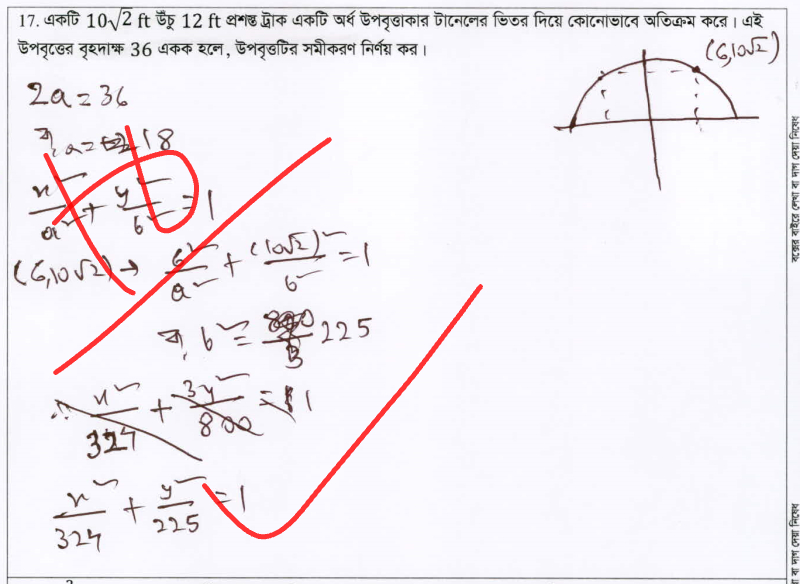 17. একটি 10√2 ft উঁচু 12 ft প্রশস্ত ট্রাক একটি অর্ধ উপবৃত্তাকার টানেলের ভিতর দিয়ে কোনোভাবে অতিক্রম করে। এই
উপবৃত্তের বৃহদাক্ষ 36 একক হলে, উপবৃত্তটির সমীকরণ নির্ণয় কর।
(6,10√2)
2a = 36
বা, a = 18
x²/a² + y²/b² = 1
(6,10√2) → 6²/a² + (10√2)²/b² = 1
বা, b² = 225
∴ x²/324 + 3y²/800 = 1
x²/324 + y²/225 = 1
বক্সের বাইরে লেখা বা দাগ দেয়া নিষেধ
বা দাগ দেয়া নিষেধ